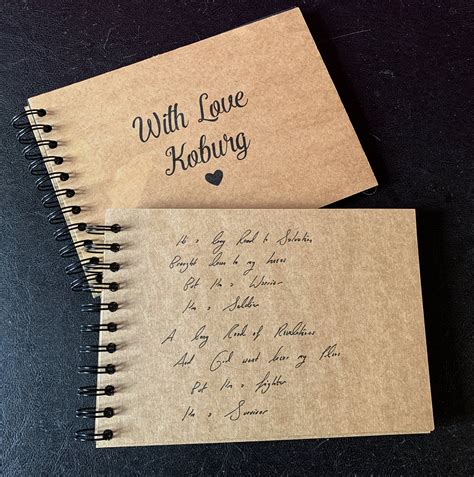 With Love
Koburg
It's a long Road to Salvation
Brought down to my knees
But I'm a Warrior
I'm a Soldier
A long Road of Revelations
And God won't leave my
But I'm a fighter
I'm a Survivor